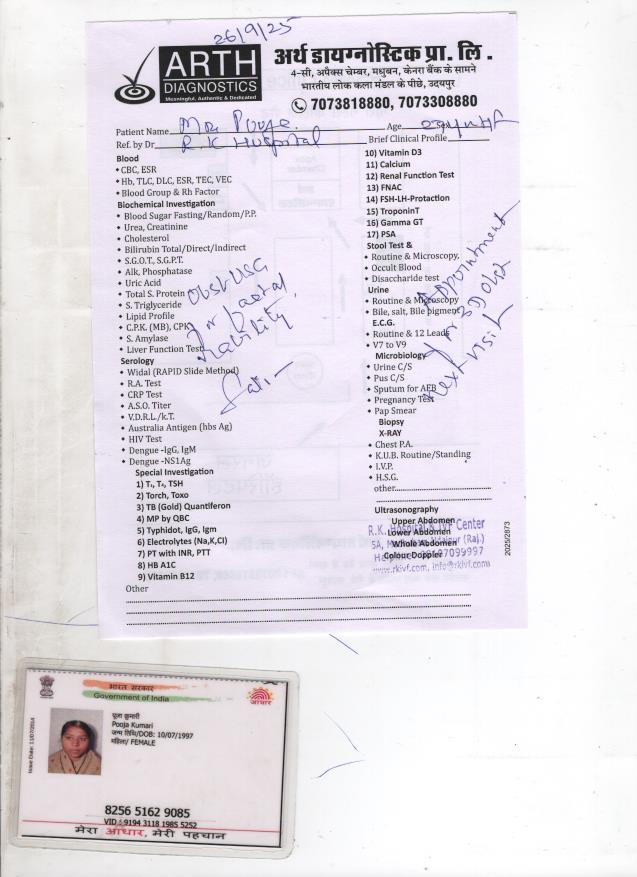 26/9/25
ARTH
DIAGNOSTICS
Meaningful, Authentic & Dedicated
अर्थ डायग्नोस्टिक प्रा. लि .
4-सी, अपैक्स चेम्बर, मधुबन, केनरा बैंक के सामने
भारतीय लोक कला मंडल के पीछे, उदयपुर
7073818880, 7073308880
Patient Name Mrs. Pooja Age
Ref. by Dr. R. K Hospital Brief Clinical Profile
Blood
CBC, ESR
Hb, TLC, DLC, ESR, TEC, VEC
Blood Group & Rh Factor
Biochemical Investigation
Blood Sugar Fasting/Random/P.P.
Urea, Creatinine
Cholesterol
Bilirubin Total/Direct/Indirect
S.G.O.T., S.G.P.T.
Alk, Phosphatase
Uric Acid
Total S. Protein
S. Triglyceride
Lipid Profile
C.P.K. (MB), CPK
S. Amylase
Liver Function Test
Serology
Widal (RAPID Slide Method)
R.A. Test
CRP Test
A.S.O. Titer
V.D.R.L./k.T.
Australia Antigen (hbs Ag)
HIV Test
Dengue -IgG, IgM
Dengue -NS1Ag
Special Investigation
1) T₃, T₄, TSH
2) Torch, Toxo
3) TB (Gold) Quantiferon
4) MP by QBC
5) Typhidot, IgG, Igm
6) Electrolytes (Na,K,Cl)
7) PT with INR, PTT
8) HB A1C
9) Vitamin B12
Other
Obst USG
for
10) Vitamin D3
11) Calcium
12) Renal Function Test
13) FNAC
14) FSH-LH-Protaction
15) TroponinT
16) Gamma GT
17) PSA
Stool Test &
Routine & Microscopy.
Occult Blood
Disaccharide test
Urine
Routine & Microscopy
Bile, salt, Bile pigment
E.C.G.
Routine & 12 Leads
V7 to V9
Microbiology
Urine C/S
Pus C/S
Sputum for AFB
Pregnancy Test
Pap Smear
Biopsy
X-RAY
Chest P.A.
K.U.B. Routine/Standing
I.V.P.
H.S.G.
other
Appointment
for 3D Obst
next visit
Ultrasonography
Upper Abdomen
Lower Abdomen
Whole Abdomen
Colour Doppler
R.K. Hospital & IVF Center
www.rkivf.com, info@rkivf.com
2025/2873
भारत सरकार
Government of India
आधार
Issue Date: 11/07/2014
पूजा कुमारी
Pooja Kumari
जन्म तिथि/DOB: 10/07/1997
महिला/ FEMALE
8256 5162 9085
VID : 9194 3118 1985 5252
मेरा आधार, मेरी पहचान